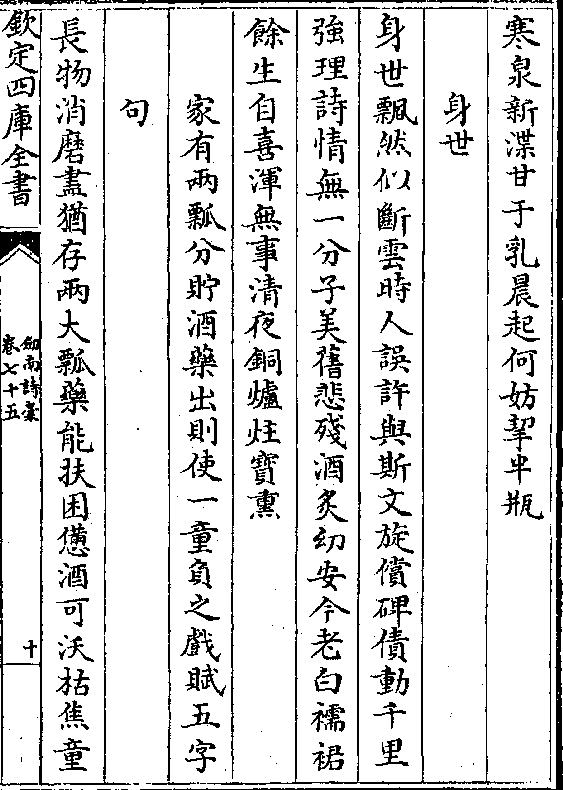 寒泉新渫甘于乳晨起何妨挈半瓶
身世
身世飄然似斷雲時人誤許與斯文旋償碑債動千里
強理詩情無一分子美舊悲殘酒炙幼安今老白襦裙
餘生自喜渾無事清夜銅爐炷寶熏
家有兩瓢分貯酒藥出則使一童負之戲賦五字
句
長物消磨盡猶存兩大瓢藥能扶困憊酒可沃枯焦童
欽定四庫全書
劒南詩稾
卷七十五
十